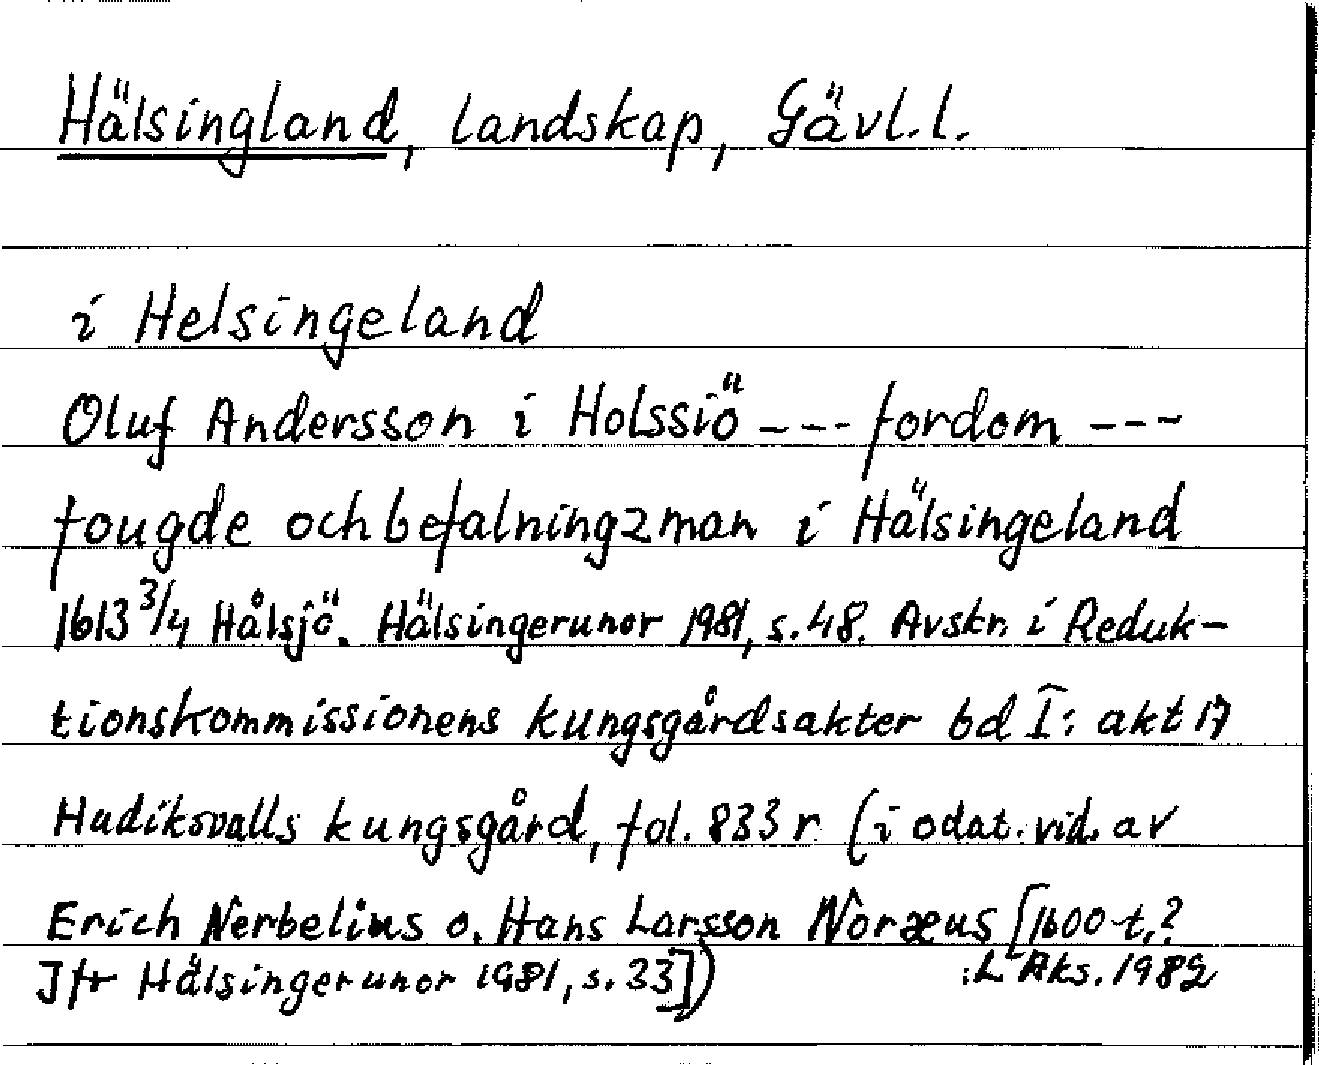 Hälsingland, landskap, Gävl.l.
i Helsingeland
Oluf Andersson i Holssiö --- fordom ---
fougde och befalningzman i Hälsingeland
1613 3/4 Hålsjö. Hälsingerunor 1981, s. 48. Avskr. i Reduk-
tionskommissionens kungsgårdsakter bd I: akt 17
Hudiksvalls kungsgård, fol. 833 r (i odat. vid. av
Erich Nerbelius o. Hans Larsson Noræus [1600-t.?
Jfr Hälsingerunor 1981, s. 33])
Aks. 1982